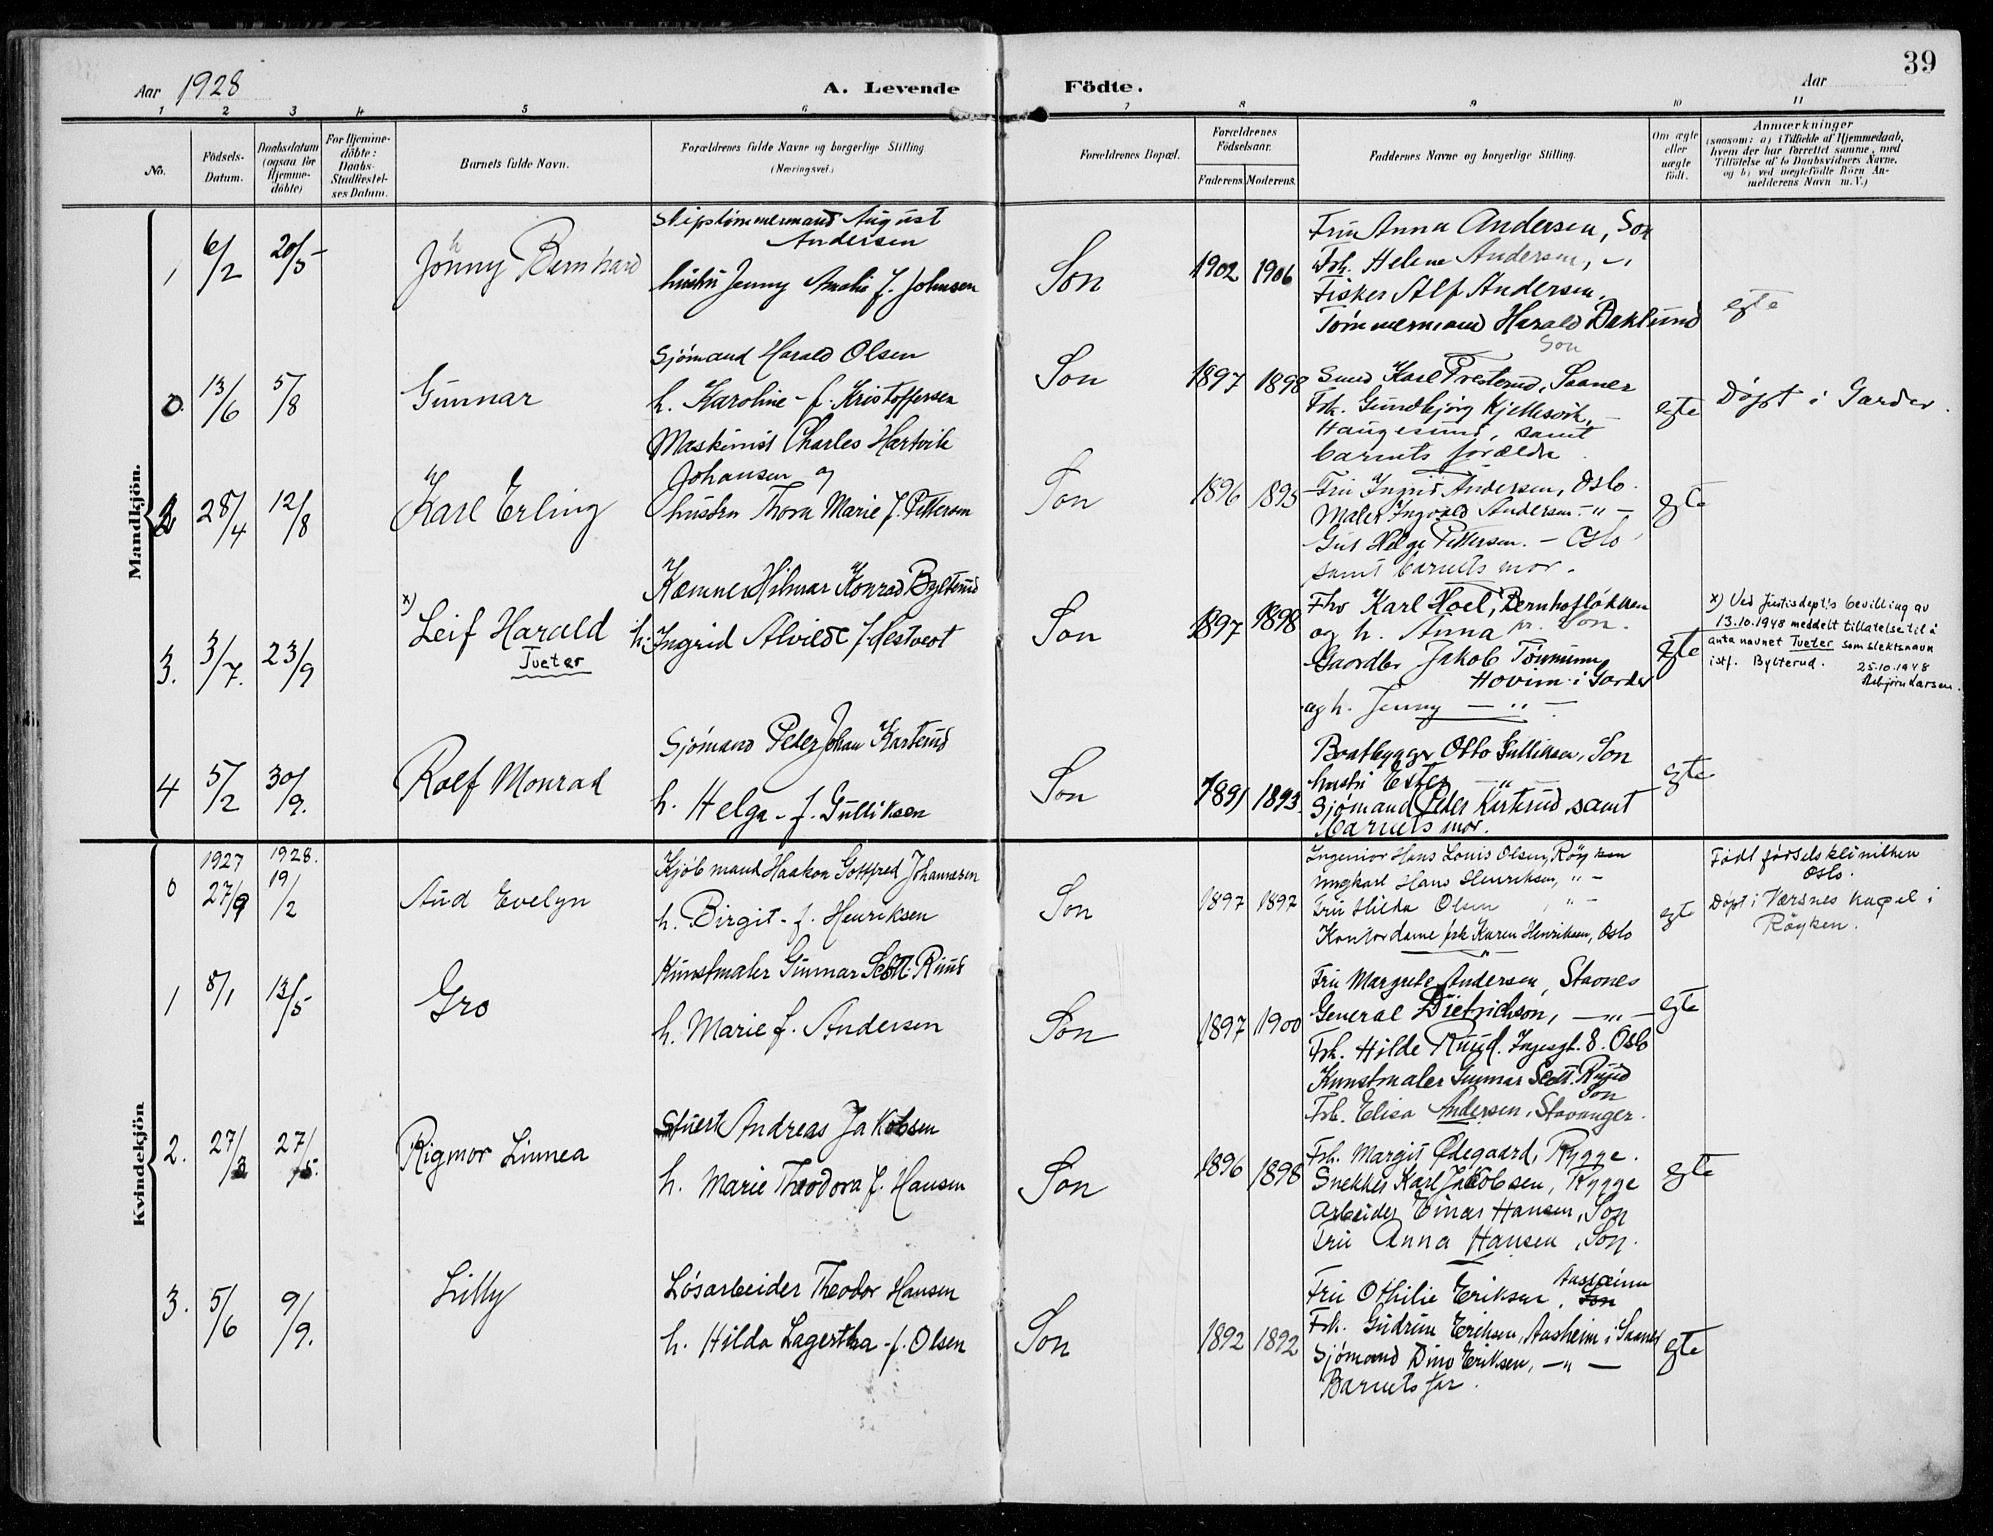 39
Aar 1928
A. Levende
Födte.
Aar
1 2 3 4 5 6 7 8 9 10 11
No.
Födsels-
Datum.
Daabsdatum
(ogsaa for
Hjemme-
döbte)
For Hjemme-
döbte:
Daabs-
Stadfæstel-
ses Datum.
Barnets fulde Navn.
Forældrenes fulde Navne og borgerlige Stilling
(Næringsvei.)
Forældrenes Bopæl.
Forældrenes
Födselsaar.
Faderens Moderens.
Faddernes Navne og borgerlige Stilling.
Om ægte
eller
uægte
födt.
Anmærkninger
(saasom: a) i Tilfælde af Hjemmedaab,
hvem der har forrettet samme, med
Tilföielse af to Daabsvidners Navne,
og b) ved uægtefödte Börn An-
melderens Navn m. V.)
Mandkjön.
1 6/2 20/5
Johnny Bernhard
Skipstømmermand August
Andersen
hustru Jenny Amalie f. Johnsen
Son 1902 1906
Fru Anna Andersen, Son
Frk. Helene Andersen, "
Fisker Alf Andersen,
Tømmermand Harald Baklund
Son
egte
0. 13/6 5/8
Gunnar
Sjömand Harald Olsen
h. Karoline - f. Kristoffersen
Son 1897 1898
Karl Presterud, Saaner
Frk. Gundbjørg
Haugesund, samt
barnets forældre.
egte
Døpt i Garder.
2 28/4 12/8
Karl Erling
Maskinist Charles Hartvik
Johansen og
hustru Thora Marie f. Pettersen
Son 1896 1895
Fru Ingrid Andersen, Oslo.
Maler Ingvald Andersen - " -
Gut Helge Pettersen. - Oslo
samt barnets mor.
egte
3. 3/7. 23/9
x) Leif Harald
Tveter
Kæmner Hilmar Konrad Bylterud
h. Ingrid Alvilde f. Hestvedt
Son 1897 1898
Karl Hoel, Bernhofløkken
og h. Anna Son.
Gaardbr Jakob
Hovim i Garder
og h. Jenny - " -
egte
x) Ved Justisdept.'s bevilling av
13.10.1948 meddelt tillatelse til å
anta navnet Tveter som slektsnavn
istf. Bylterud. 25.10.1948
Asbjørn Larsen.
4 5/2 30/9.
Rolf Monrad
Sjömand Peder Johan Karterud
h. Helga - f. Gulliksen
Son 1891 1893
Baatbygger Otto Gulliksen, Son
hustru Ester - " -
Sjömand Peder Karterud samt
barnets mor.
egte
Kvindekjön
0 1927 27/9 1928. 19/2
Aud Evelyn
Kjøbmand Haakon Gottfred Johannesen
h. Birgit - f. Henriksen
Son 1897 1897
Ingeniør Hans Louis Olsen, Röyken
ungkarl Hans Henriksen, " -
Fru Hilda Olsen " -
Kontordame frk Karen Henriksen, Oslo
egte
Födt fødselsklinikken
Oslo.
Døpt i Nærsnes kapel i
Røyken.
1 8/1 13/5
Gro
Kunstmaler Gunnar Scott Ruud
h. Marie f. Andersen
Son 1897 1900
Fru Margrete Andersen, Stavnes
General Dietrichson, - " -
Frk. Hilde Ruud. Ingesgt. 8. Oslo
Kunstmaler Gunnar Scott Ruud
Son
Frk. Elisa Andersen, Stavanger.
egte
2. 27/3 27/5.
Rigmor Linnea
Stuert Andreas Jakobsen
h. Marie Theodora f. Hansen
Son 1896 1898
Frk. Margit Ødegaard, Rygge.
Snekker Karl Jakobsen, Rygge
Arbeider Einar Hansen, Son
Fru Anna Hansen, Son.
egte
3. 5/6 9/9.
Lilly
Løsarbeider Theodor Hansen
h. Hilda Lagertha - f. Olsen
Son 1892 1892
Fru Othilie Eriksen, Aasheim
Frk. Gudrun Eriksen, Aasheim i Saaner
Sjömand Eriksen, - " -
Barnets far.
egte